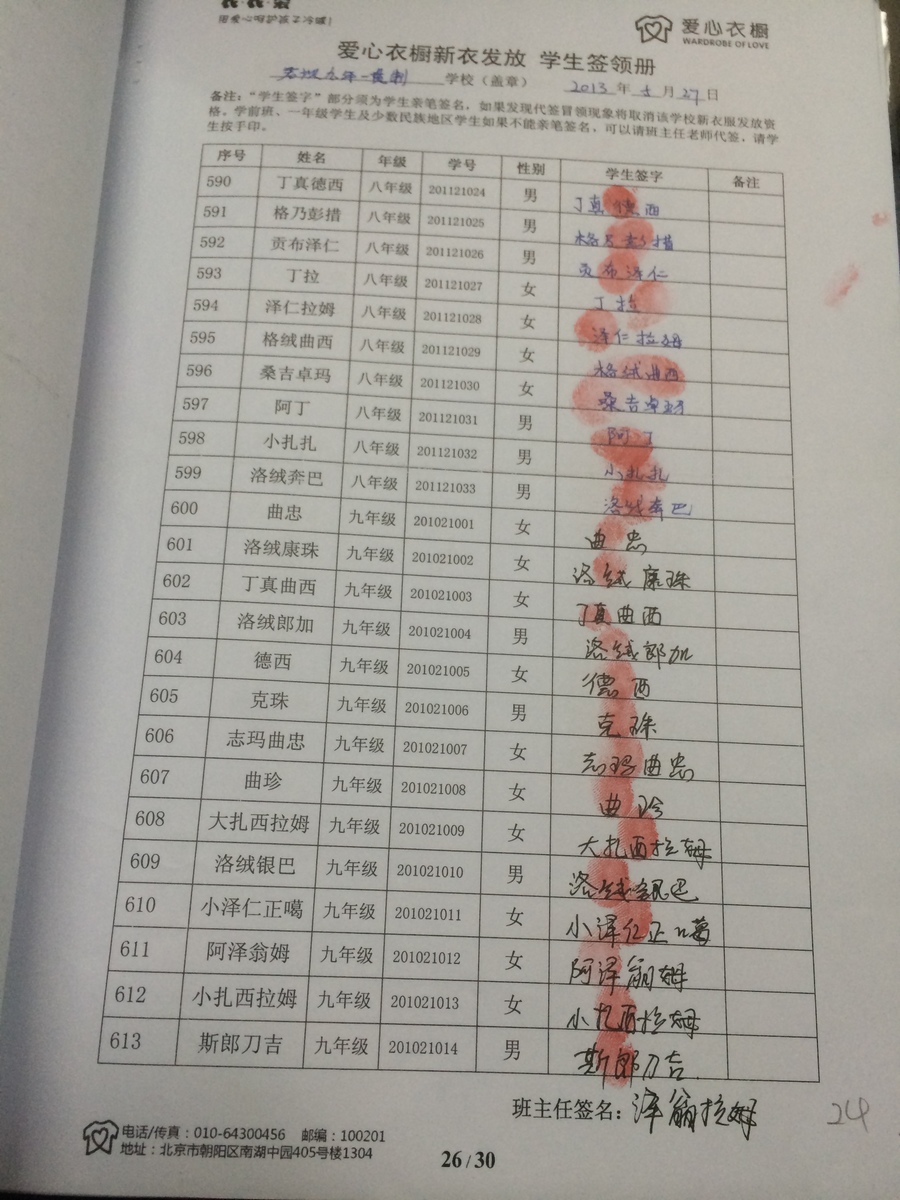 用爱心呵护孩子冷暖！
爱心衣橱
WARDROBE OF LOVE
爱心衣橱新衣发放 学生签领册
九年一贯制 学校（盖章） 2013 年 5 月 27 日
备注：“学生签字”部分须为学生亲笔签名，如果发现代签冒领现象将取消该学校新衣服发放资
格。学前班、一年级学生及少数民族地区学生如果不能亲笔签名，可以请班主任老师代签，请学
生按手印。
序号 姓名 年级 学号 性别 学生签字 备注
590 丁真德西 八年级 201121024 男 丁真德西
591 格乃彭措 八年级 201121025 男 格乃彭措
592 贡布泽仁 八年级 201121026 男 贡布泽仁
593 丁拉 八年级 201121027 女 丁拉
594 泽仁拉姆 八年级 201121028 女 泽仁拉姆
595 格绒曲西 八年级 201121029 女 格绒曲西
596 桑吉卓玛 八年级 201121030 女 桑吉卓玛
597 阿丁 八年级 201121031 男 阿丁
598 小扎扎 八年级 201121032 男 小扎扎
599 洛绒奔巴 八年级 201121033 男 洛绒奔巴
600 曲忠 九年级 201021001 女 曲忠
601 洛绒康珠 九年级 201021002 女 洛绒康珠
602 丁真曲西 九年级 201021003 女 丁真曲西
603 洛绒郎加 九年级 201021004 男 洛绒郎加
604 德西 九年级 201021005 女 德西
605 克珠 九年级 201021006 男 克珠
606 志玛曲忠 九年级 201021007 女 志玛曲忠
607 曲珍 九年级 201021008 女 曲珍
608 大扎西拉姆 九年级 201021009 女 大扎西拉姆
609 洛绒银巴 九年级 201021010 男 洛绒银巴
610 小泽仁正噶 九年级 201021011 女 小泽仁正噶
611 阿泽翁姆 九年级 201021012 女 阿泽翁姆
612 小扎西拉姆 九年级 201021013 女 小扎西拉姆
613 斯郎刀吉 九年级 201021014 男 斯郎刀吉
班主任签名：泽翁拉姆
24
电话/传真：010-64300456 邮编：100201
地址：北京市朝阳区南湖中园405号楼1304
26 / 30